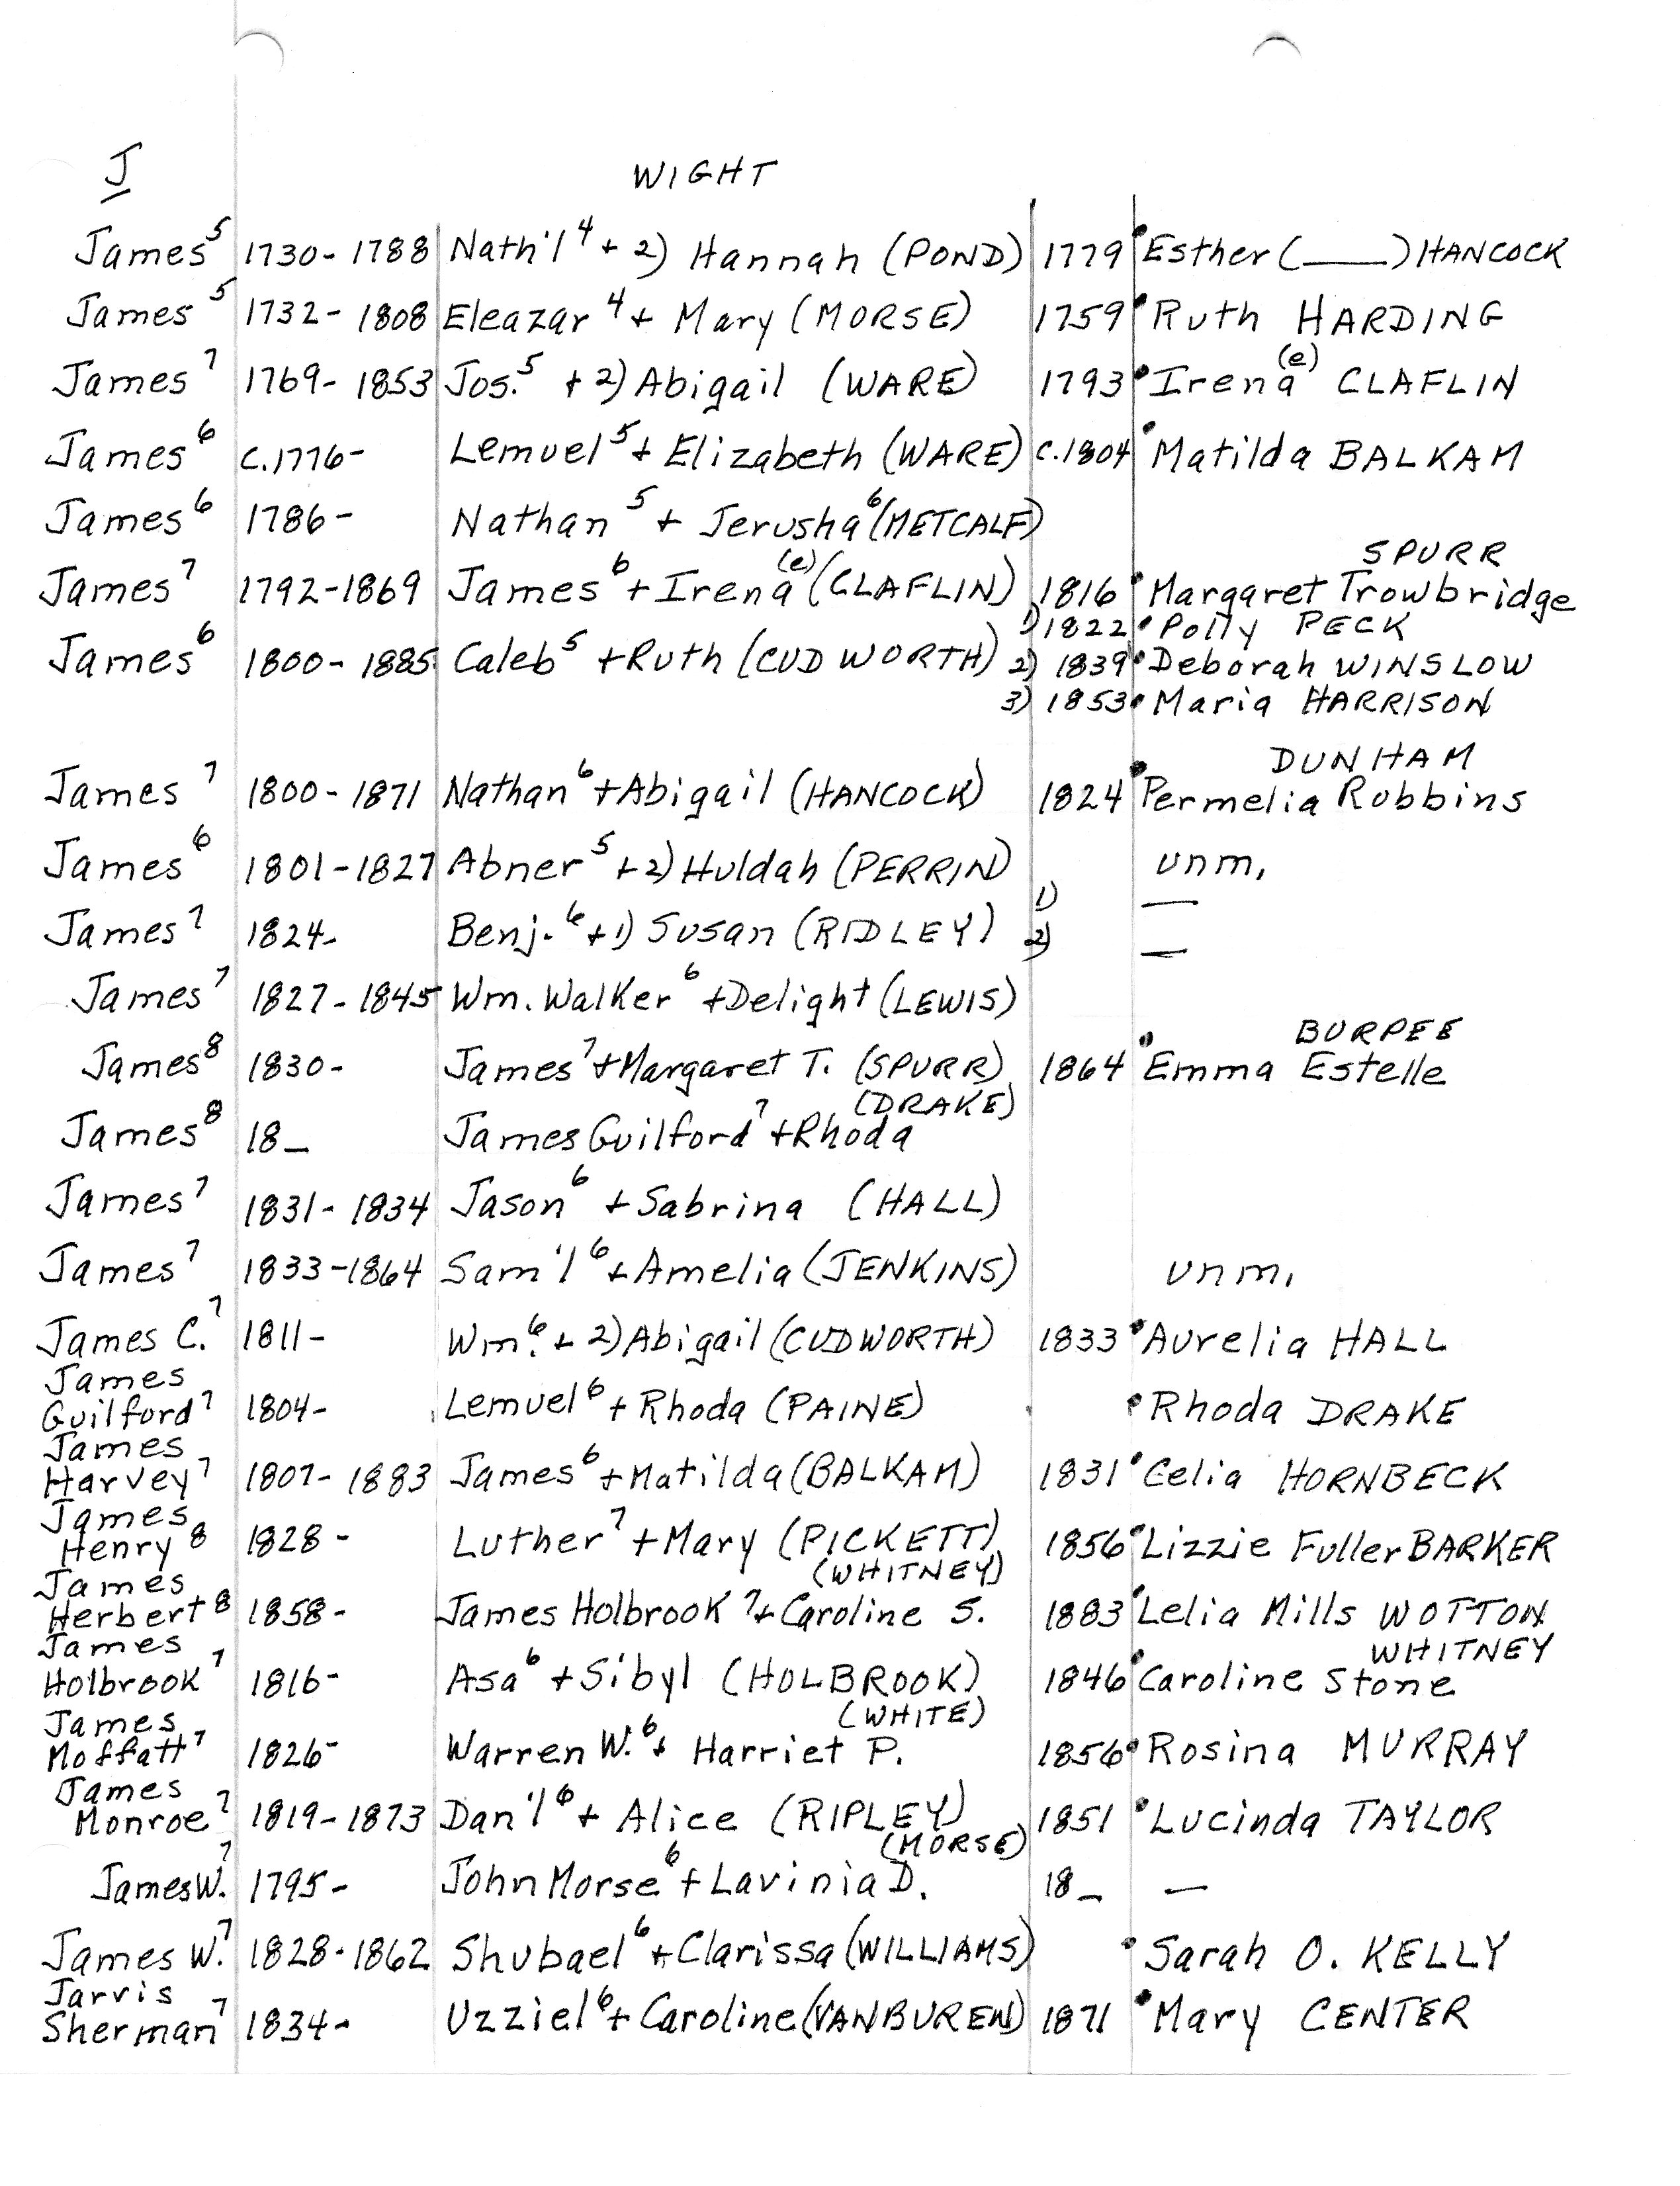 J WIGHT
James⁵ 1730-1788 Nath'l⁴ + 2) Hannah (POND) 1779 • Esther (___) HANCOCK
James⁵ 1732-1808 Eleazar⁴ + Mary (MORSE) 1759 • Ruth HARDING
(e)
James⁷ 1769-1853 Jos.⁵ + 2) Abigail (WARE) 1793 • Irena CLAFLIN
James⁶ c.1776- Lemuel⁵ + Elizabeth (WARE) c.1804 • Matilda BALKAM
James⁶ 1786- Nathan⁵ + Jerusha⁶ (METCALF)
(e) SPURR
James⁷ 1792-1869 James⁶ + Irena (CLAFLIN) 1816 • Margaret Trowbridge
1) 1822 • Polly PECK
James⁶ 1800-1885 Caleb⁵ + Ruth (CUDWORTH) 2) 1839 • Deborah WINSLOW
3) 1853 • Maria HARRISON
DUNHAM
James⁷ 1800-1871 Nathan⁶ + Abigail (HANCOCK) 1824 • Permelia Robbins
James⁶ 1801-1827 Abner⁵ + 2) Huldah (PERRIN) unm.
1) —
James⁷ 1824- Benj.⁶ + 1) Susan (RIDLEY) 2) —
James⁷ 1827-1845 Wm. Walker⁶ + Delight (LEWIS)
BURPEE
James⁸ 1830- James⁷ + Margaret T. (SPURR) 1864 • Emma Estelle
(DRAKE)
James⁸ 18_ James Guilford⁷ + Rhoda
James⁷ 1831-1834 Jason⁶ + Sabrina (HALL)
James⁷ 1833-1864 Sam'l⁶ + Amelia (JENKINS) unm.
James C.⁷ 1811- Wm.⁶ + 2) Abigail (CUDWORTH) 1833 • Aurelia HALL
James
Guilford⁷ 1804- Lemuel⁶ + Rhoda (PAINE) • Rhoda DRAKE
James
Harvey⁷ 1807-1883 James⁶ + Matilda (BALKAM) 1831 • Celia HORNBECK
James
Henry⁸ 1828- Luther⁷ + Mary (PICKETT) 1856 • Lizzie Fuller BARKER
James (WHITNEY)
Herbert⁸ 1858- James Holbrook⁷ + Caroline S. 1883 • Lelia Mills WOTTON
James WHITNEY
Holbrook⁷ 1816- Asa⁶ + Sibyl (HOLBROOK) 1846 • Caroline Stone
James (WHITE)
Moffatt⁷ 1826- Warren W.⁶ + Harriet P. 1856 • Rosina MURRAY
James
Monroe⁷ 1819-1873 Dan'l⁶ + Alice (RIPLEY) 1851 • Lucinda TAYLOR
(MORSE)
James W.⁷ 1795- John Morse⁶ + Lavinia D. 18_ —
James W.⁷ 1828-1862 Shubael⁶ + Clarissa (WILLIAMS) • Sarah O. KELLY
Jarvis
Sherman⁷ 1834- Uzziel⁶ + Caroline (VANBUREN) 1871 • Mary CENTER